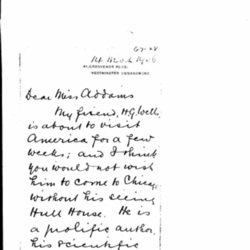 GROSVENOR ROAD,
WESTMINSTER EMBANKMENT
Dear Miss Addams
My friend, H.G. Wells,
is about to visit
America for a few
weeks; and I think
you would not wish
him to come to Chicago
without his seeing
Hull House. He is
a prolific author,
his scientific